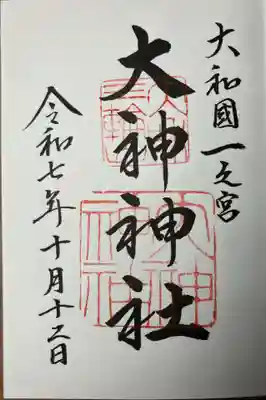 大和國一之宮
大神神社
令和七年十月十二日